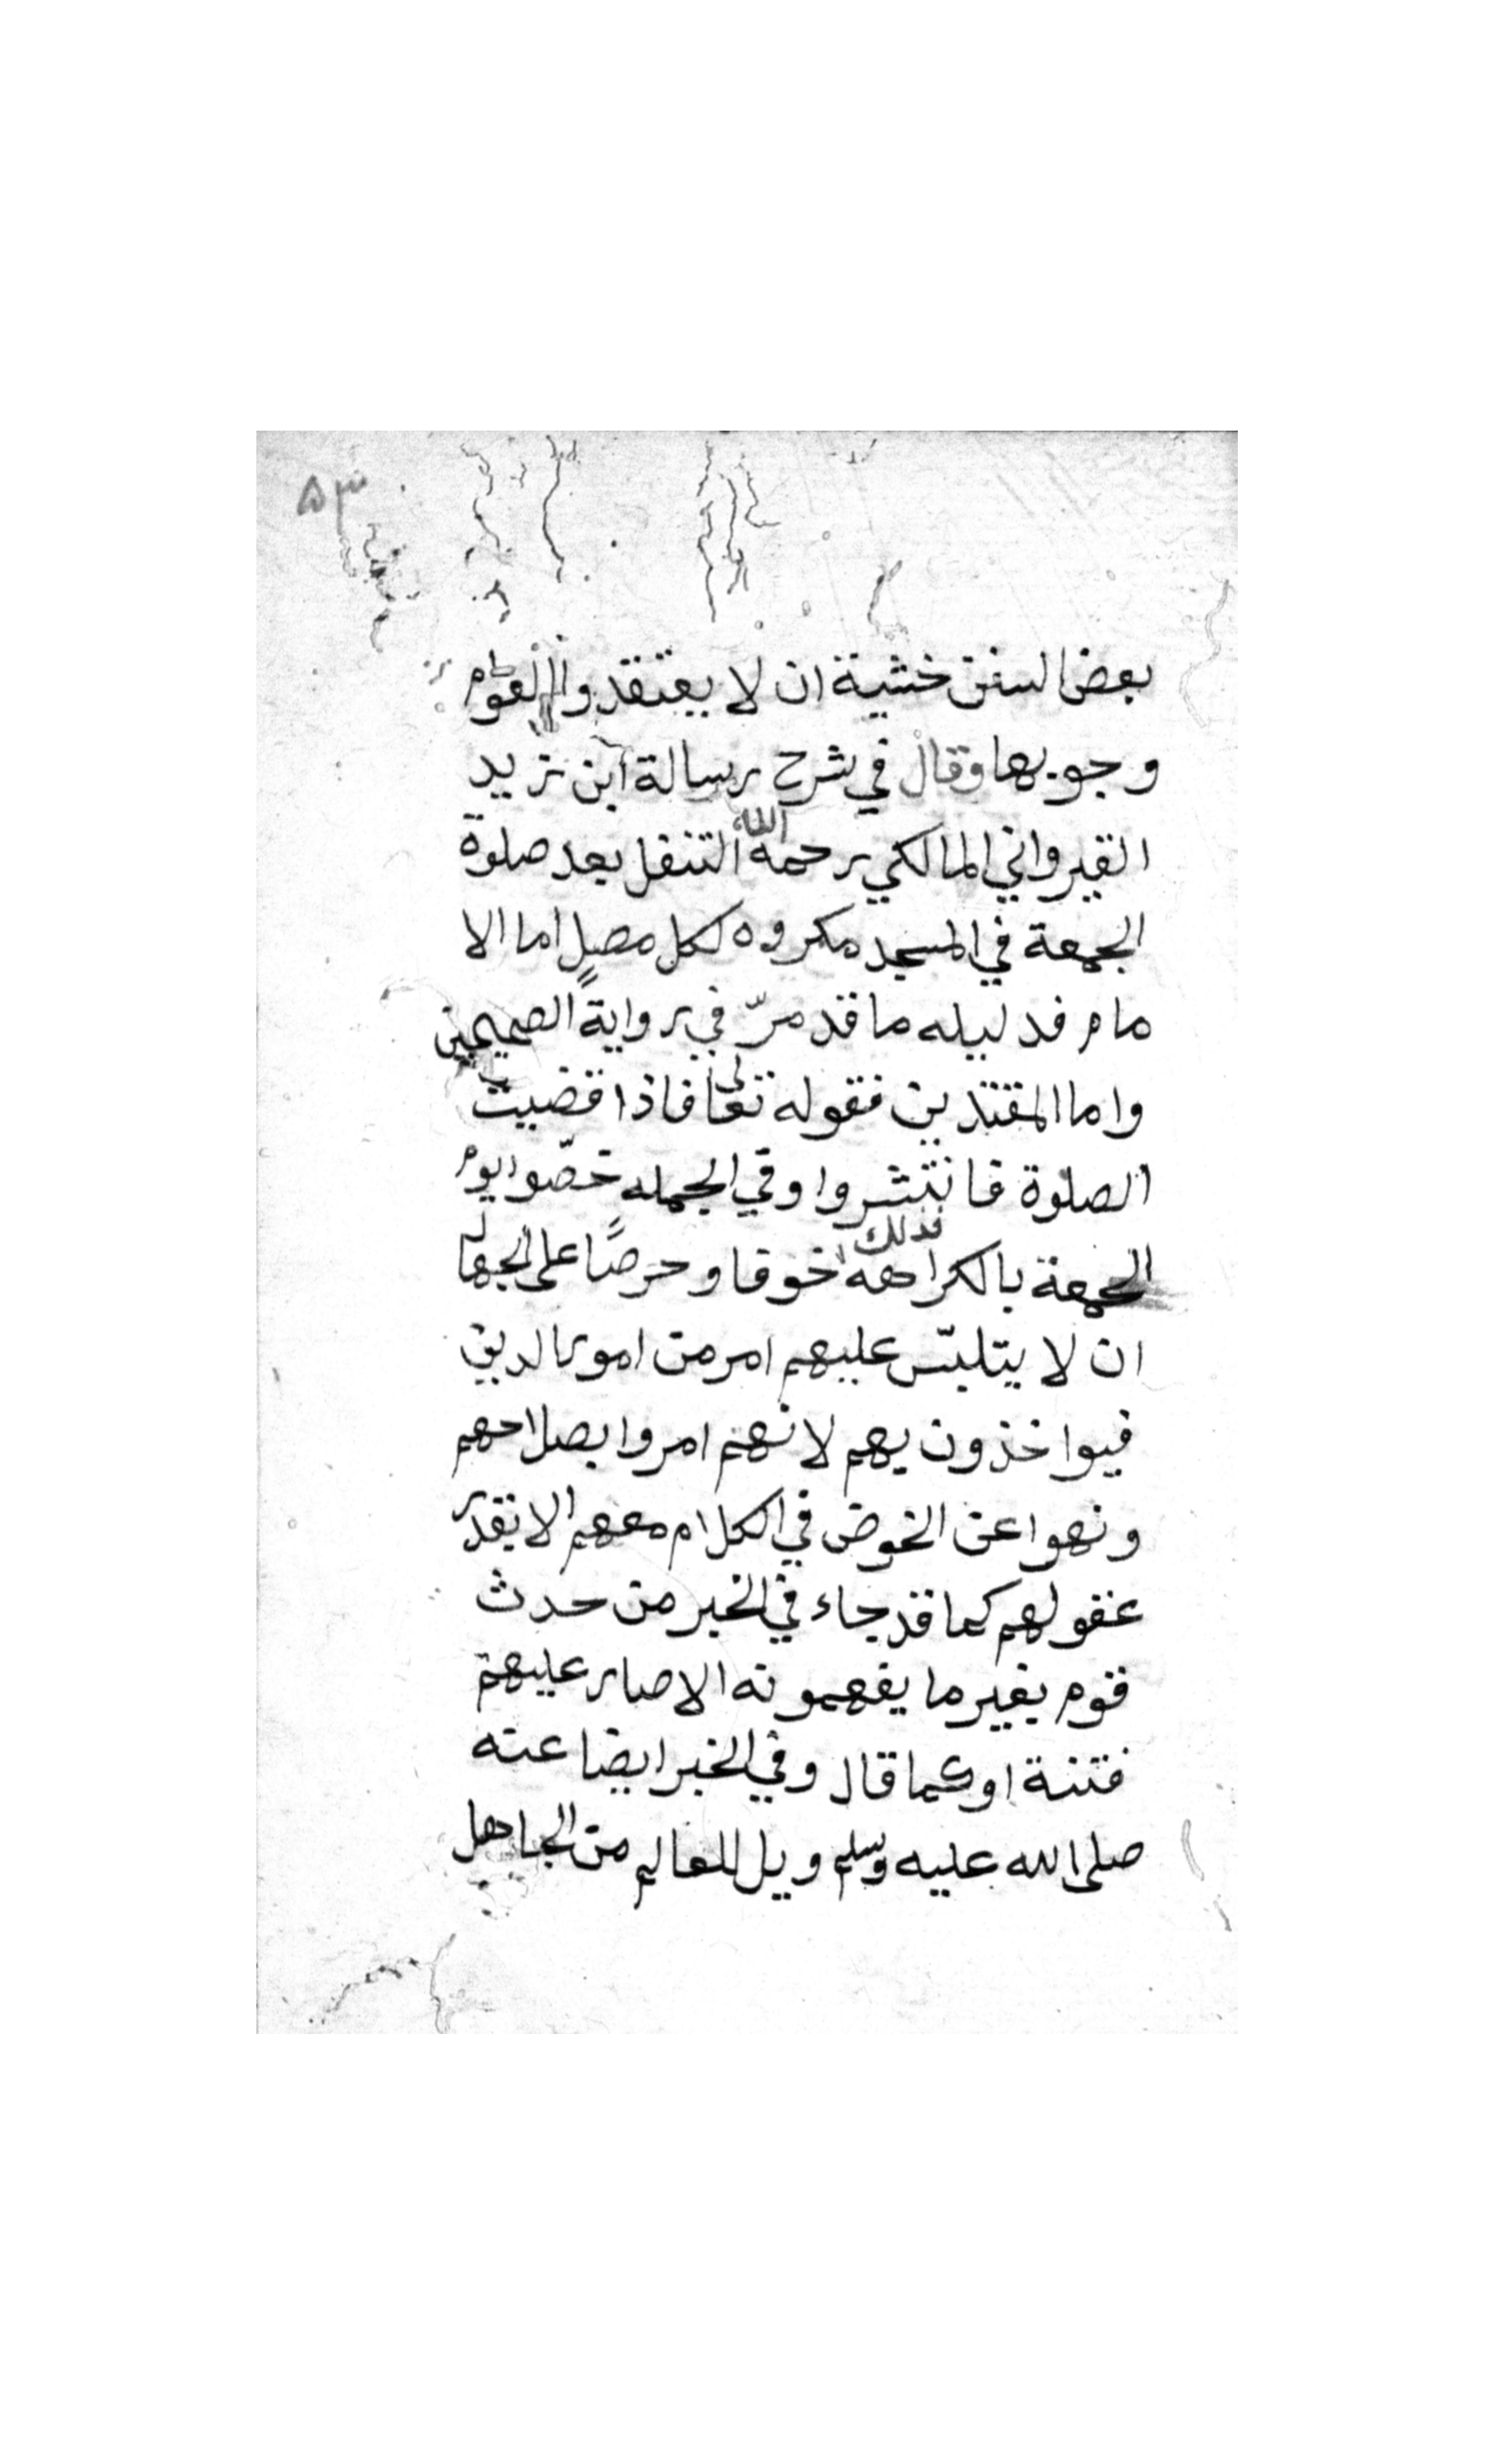 ٥٣
بعض السنن خشية ان لا يعتقدوا العوام
وجوبها وقال في شرح رسالة ابن زيد
القيرواني المالكي رحمه الله التنفل بعد صلوة
الجمعة في المسجد مكروه لكل مصلٍ اما الا
مام فدليله ما قد مرّ في رواية الصحيحين
واما المقتدين فقوله تعالى فاذا قضيت
الصلوة فانتشروا وفي الجمله خصّوا يوم
الجمعة بالكراهه لذلك خوفا وحرصًا على الجهال
ان لا يتلبّس عليهم امر من امور الدين
فيواخذون بهم لانهم امروا بصلاحهم
ونهوا عن الخوض في الكلام معهم الا بقدر
عقولهم كما قد جاء في الخبر من حدث
قوم بغير ما يفهمونه الا صار عليهم
فتنة او كما قال وفي الخبر ايضا عنه
صلى الله عليه وسلم ويل للعالم من الجاهل